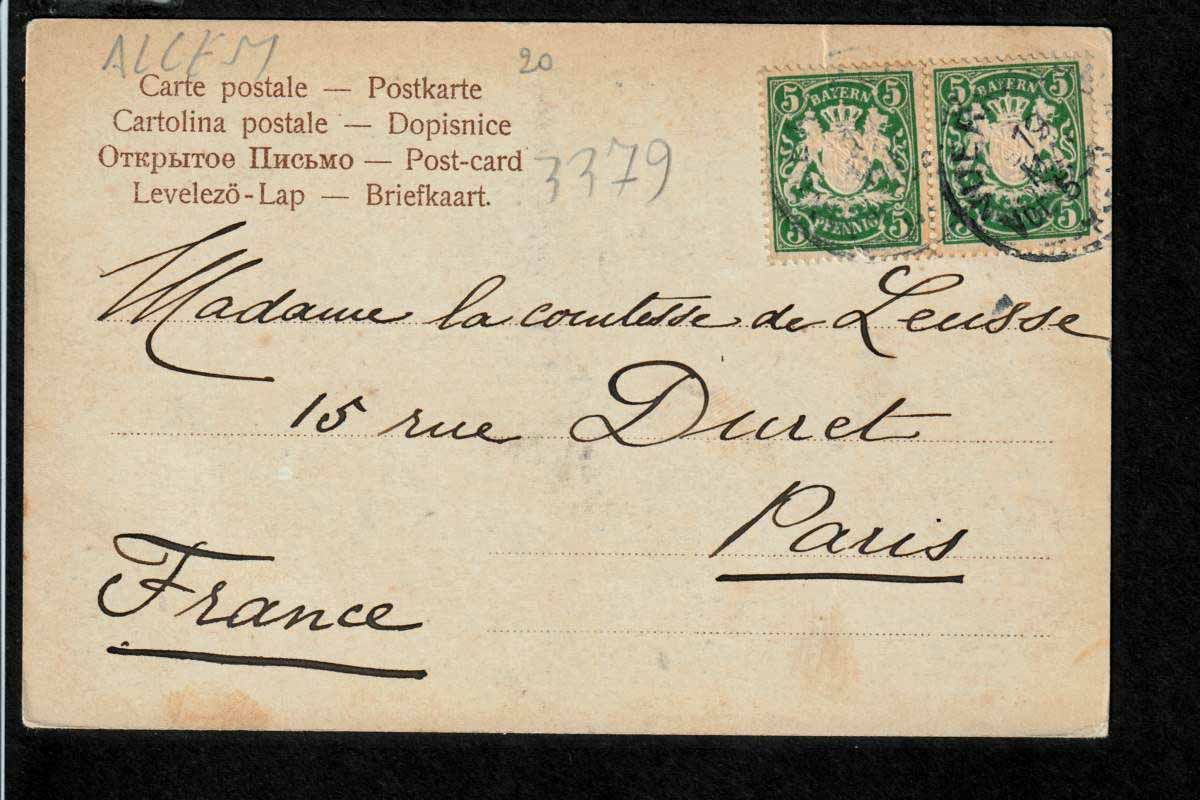 ALLEM
20
Carte postale — Postkarte
Cartolina postale — Dopisnice
Открытое Письмо — Post-card
Levelező-Lap — Briefkaart.
3379
5 BAYERN 5
5 PFENNIG 5
5 5
5 5
Madame la comtesse de Leusse
15 rue Duret
Paris
France